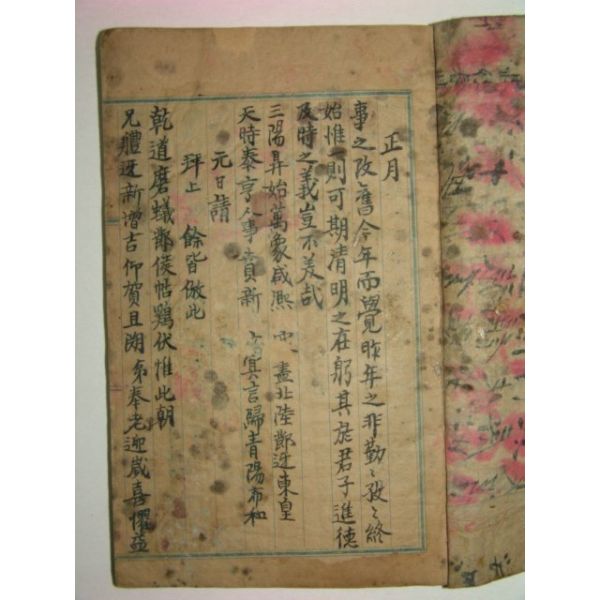 正月
事之改舊今年而覺昨年之非勤〻孜〻終
始惟一則可期清明之在躬其於君子進德
及時之義豈不美哉
三陽昇始萬象咸熙 盡北陸鄒近東皇
天時泰亨人事賁新 冥言歸青陽布和
元日請
拜上 餘皆倣此
乾道磨蟻鄒侯帖鷄伏惟此朝
兄體迓新增吉仰賀且閱弟奉老迎歲喜懼益